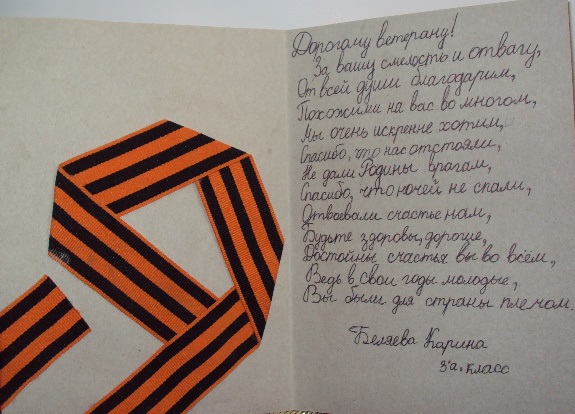 Дорогому ветерану!
За вашу смелость и отвагу,
От всей души благодарим,
Похожими на вас во многом,
Мы очень искренне хотим,
Спасибо, что нас отстояли,
Не дали Родины врагам,
Спасибо, что ночей не спали,
Отвоевали счастье нам,
Будьте здоровы, дорогие,
Достойны счастья вы во всём,
Ведь в свои годы молодые,
Вы были для страны плечом.
Беляева Карина
3"а" класс